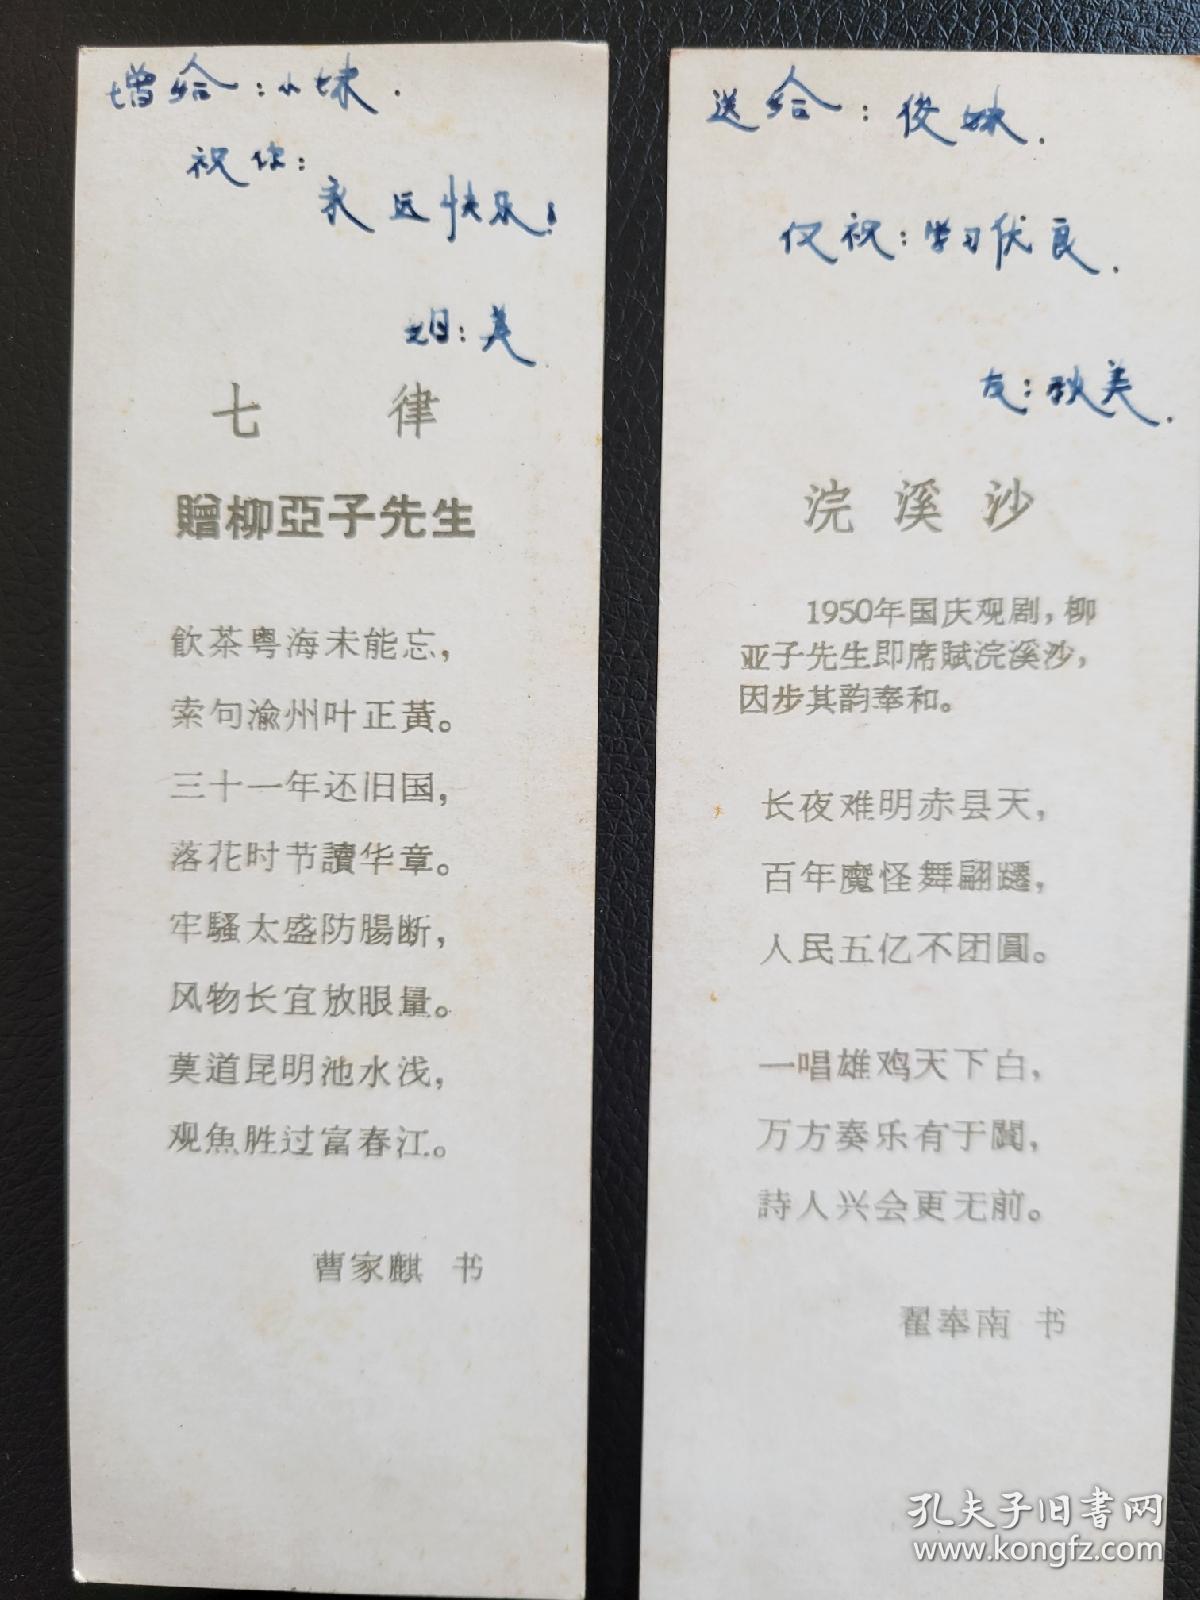 增给：小妹.
祝你：
永远快乐！
姐：美
七 律
贈柳亞子先生
飲茶粤海未能忘，
索句渝州叶正黃。
三十一年还旧国，
落花时节讀华章。
牢騷太盛防腸断，
风物长宜放眼量。
莫道昆明池水浅，
观魚胜过富春江。
曹家麒 书
送给：俊妹.
仅祝：学习优良.
友：秋美.
浣溪沙
1950年国庆观剧，柳
亚子先生即席赋浣溪沙，
因步其韵奉和。
长夜难明赤县天，
百年魔怪舞翩躚，
人民五亿不团圓。
一唱雄鸡天下白，
万方奏乐有于闐，
詩人兴会更无前。
翟奉南 书
孔夫子旧书网
www.kongfz.com